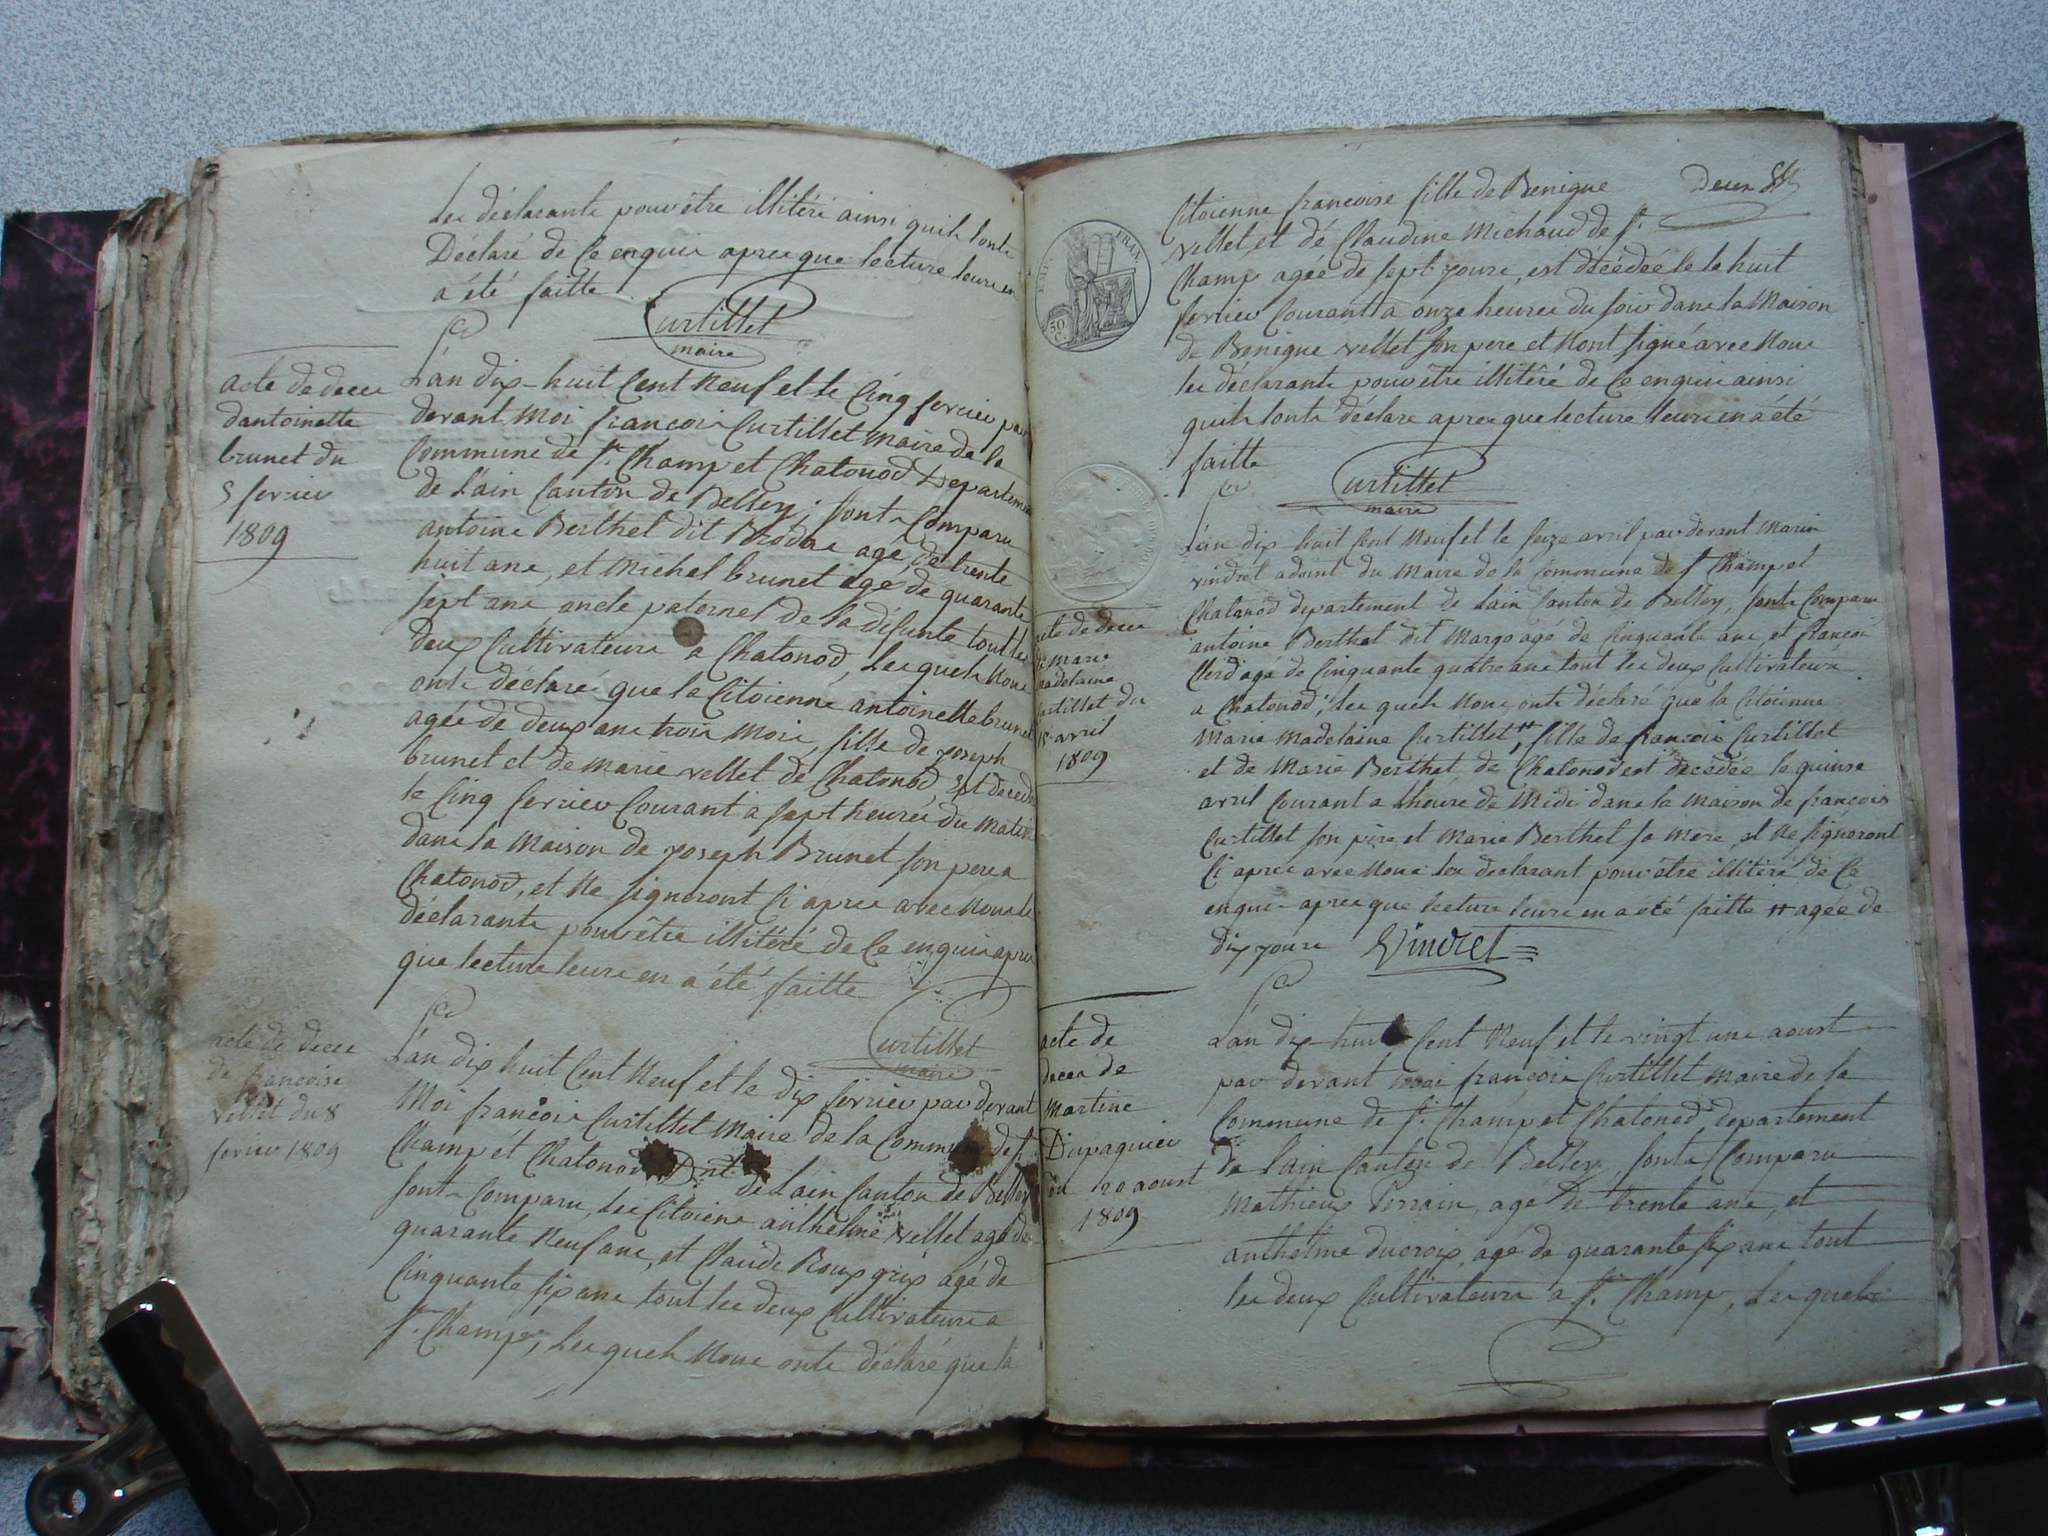 Les déclarants pour être illitéré ainsi quils lonts
Déclaré de Ce enquis apres que lecture leurs en
a été faitte
Curtillet
maire
acte de deces
dantoinette
brunet du
5 fevrier
1809
Lan dix-huit Cent Neuf et le Cinq fevrier par
devant Moi françois Curtillet maire de la
Commune de St. Champ et Chatonod Departement
de Lain Canton de Belley, sonts Comparu
antoine Berthet dit agé de trente
huit ans, et Michel brunet agé de quarante
sept ans oncle paternel de la défunte tout les
deux Cultivateurs a Chatonod, Les quels Nous
onts déclaré que la Citoienne antoinette brunet
agée de deux ans trois Mois, fille de joseph
brunet et de marie vellet de Chatonod, est decedée
le Cinq fevrier Courant a sept heures du matin
dans la Maison de joseph Brunet son pere a
Chatonod, et Ne signeront Ci apres avec Nous les
déclarants pour être illitéré de Ce enquis apres
que lecture leurs en a été faitte
Curtillet
maire
acte de deces
de francoise
vellet du 8
fevrier 1809
Lan dix huit Cent Neuf et le dix fevrier par devant
Moi françois Curtillet Maire de la Commune de St.
Champ et Chatonod Dpt. de Lain Canton de Belley
sonts Comparu, Les Citoiens anthelme vellet agé de
quarante Neuf ans, et Claude Roux gris agé de
Cinquante six ans tout les deux Cultivateurs a
St. Champ, Les quels Nous onts déclaré que la
Deces
Citoienne francoise fille de Benigne
vellet et de Claudine Michaud de St.
Champ agée de sept jours, est décédée le huit
fevrier Courant a onze heures du soir dans la Maison
de Benigne vellet son pere et Nont signé avec Nous
les déclarants pour être illitéré de Ce enquis ainsi
quils lonts déclare apres que lecture leurs en a été
faitte
EMP. FRAN.
50
C.
Curtillet
maire
acte de deces
de marie
madelaine
Curtillet du
15 avril
1809
Lan dix huit Cent Neuf et le seize avril par devant Marin
vindret adoint du Maire de la Commune de St Champ et
Chatonod departement de Lain Canton de Belley, sonts Comparu
antoine Berthet dit Margo agé de Cinquante ans et françois
Clerd agé de Cinquante quatre ans tout les deux Cultivateurs
a Chatonod, Les quels Nous onts déclaré que la Citoienne
Marie Madelaine Curtillet, # fille de françois Curtillet
et de Marie Berthet, de Chatonod est decedée le quinze
avril Courant a Lheure de Midi dans la Maison de françois
Curtillet son père et Marie Berthet sa Mere, et Ne signeront
Ci apres avec Nous les declarant pour être illitéré de Ce
enquis apres que lecture leurs en a été faitte # agée de
dix jours Vindret
acte de
deces de
Martine
Dupaquier
du 20 aoust
1809
Lan dix huit Cent Neuf et le vingt une aoust
par devant moi françois Curtillet Maire de la
Commune de St. Champ et Chatonod departement
de Lain Canton de Belley, sonts Comparu
Mathieux Perrain, agé de trente ans, et
anthelme ducroix, agé de quarante six ans tout
les deux Cultivateurs a St. Champ, Les quels